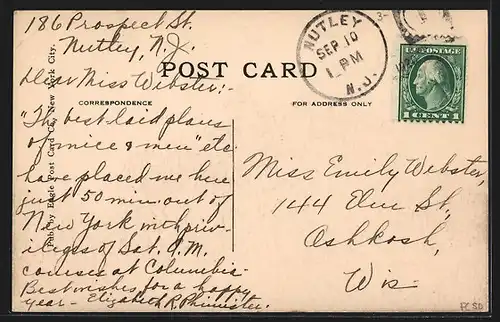 186 Prospect St.
Nutley, N.J.
Dear Miss Webster:-
"The best laid plans
of mice & men" etc
have placed me here
just 50 min. out of
New York with priv-
ileges of Sat. A.M.
courses at Columbia.
Best wishes for a happy
year- Elizabeth R. Phimister.
POST CARD
CORRESPONDENCE
FOR ADDRESS ONLY
Publ. by Eagle Post Card Co., New York City.
NUTLEY
SEP 10
1 PM
N.J.
U.S. POSTAGE
1 CENT 1
Miss Emily Webster,
144 Elm St,
Oshkosh,
Wis